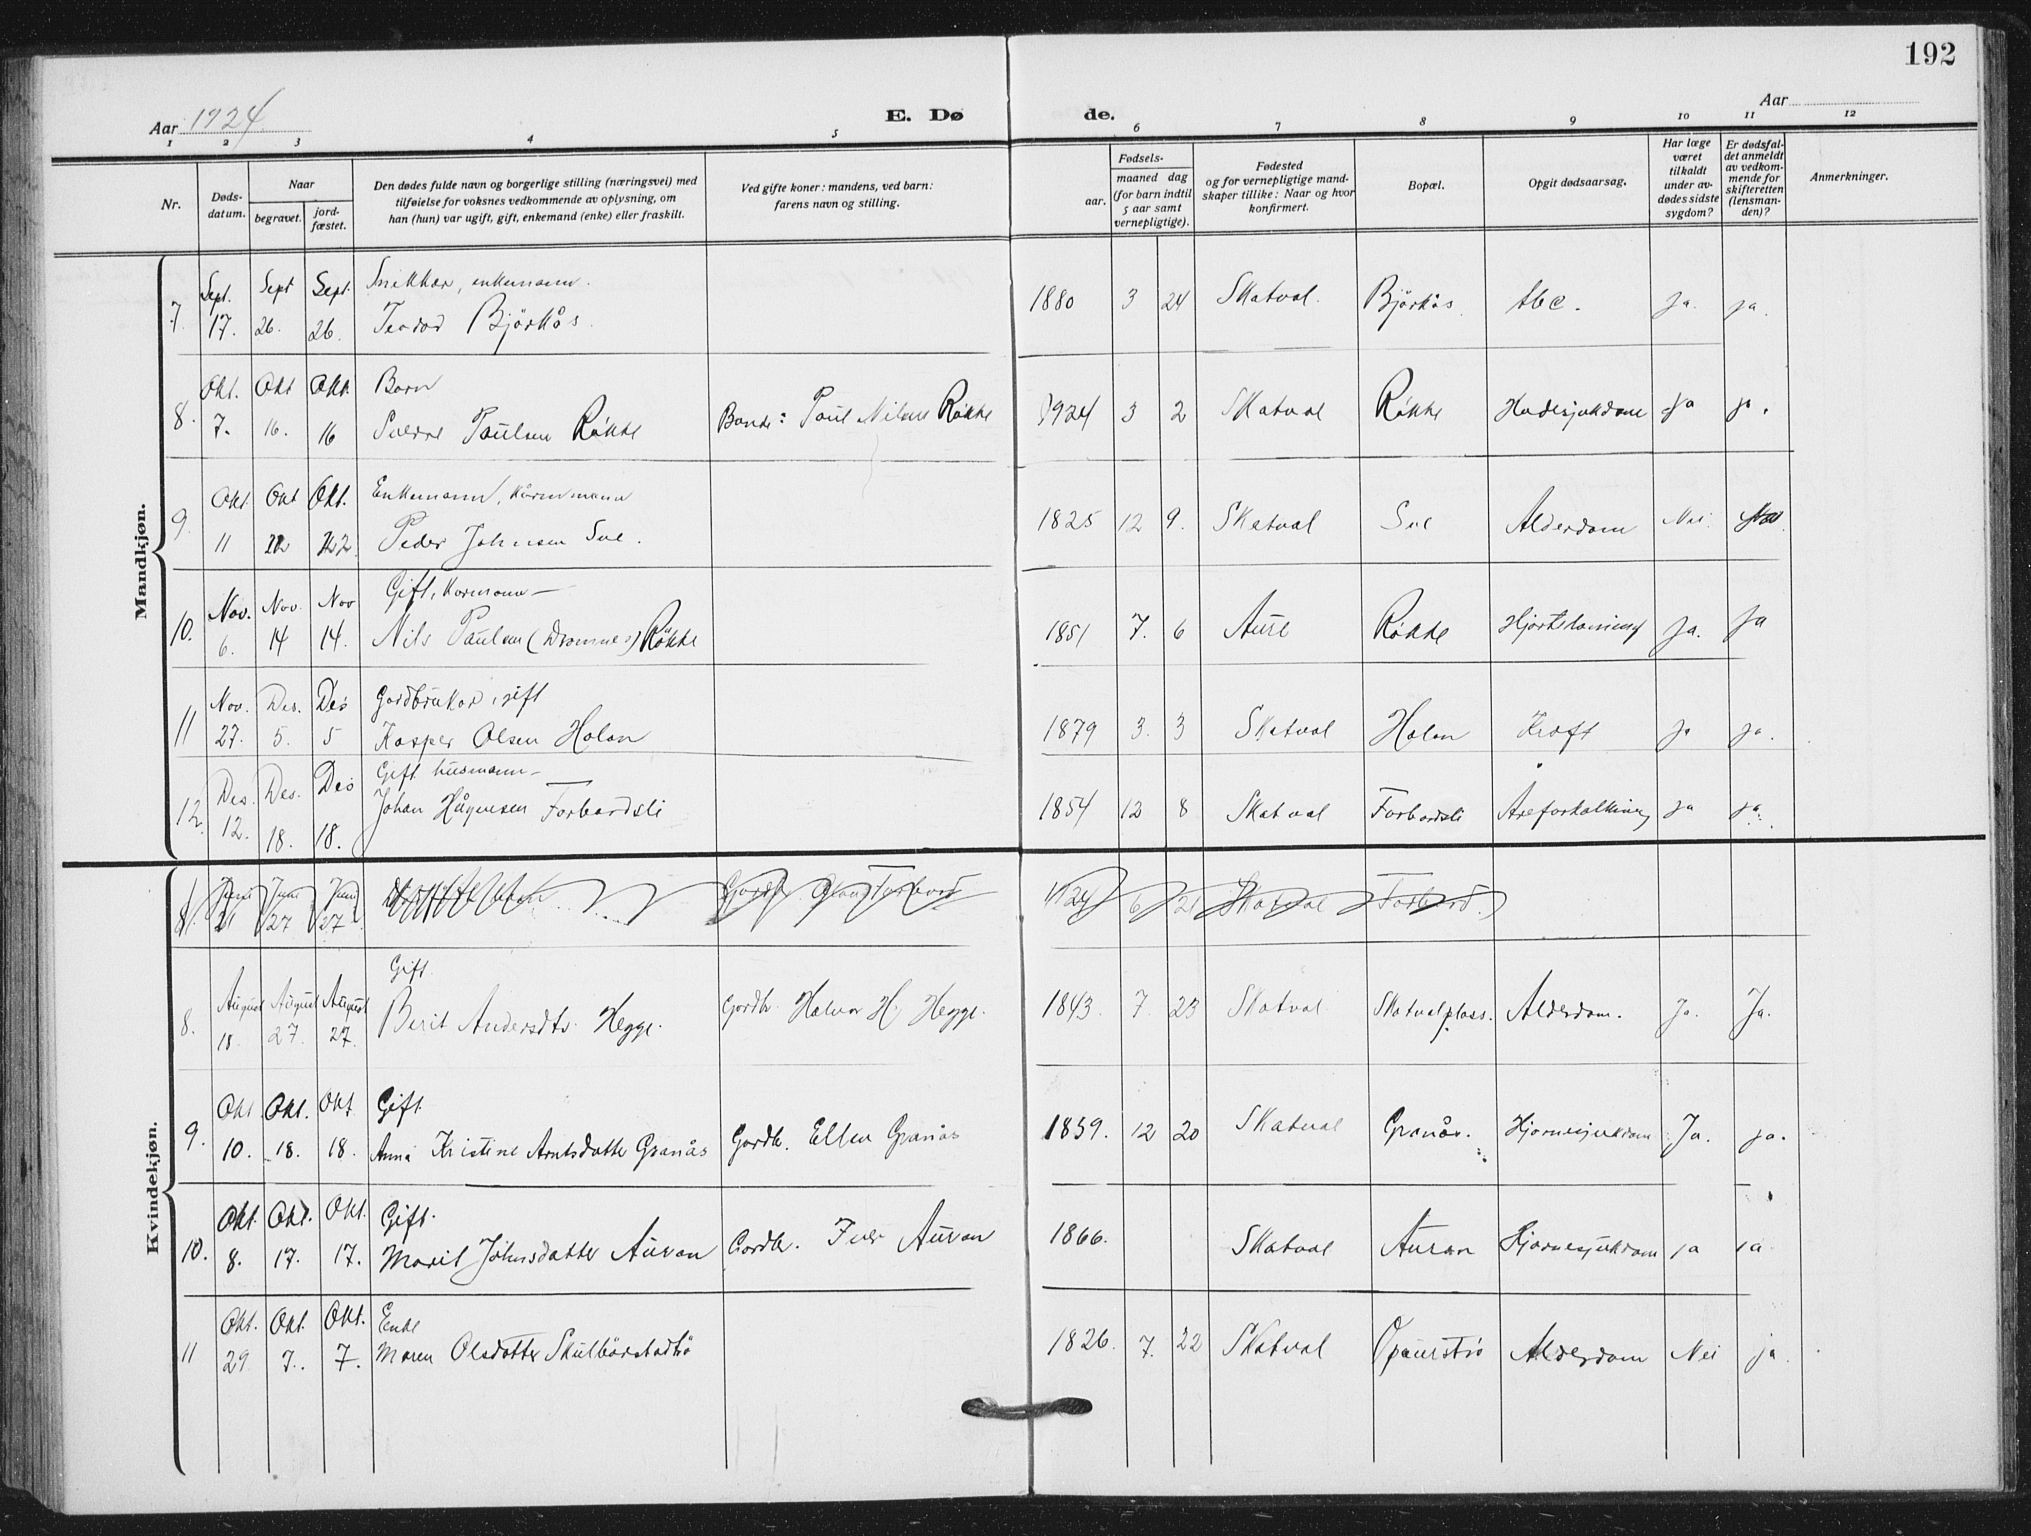 192
Aar 1924
E. Dø
de.
Aar
1 2 3 4 5 6 7 8 9 10 11 12
Nr.
Døds-
datum.
Naar
begravet.
jord-
fæstet.
Den dødes fulde navn og borgerlige stilling (næringsvei) med
tilføielse for voksnes vedkommende av oplysning, om
han (hun) var ugift, gift, enkemand (enke) eller fraskilt.
Ved gifte koner: mandens, ved barn:
farens navn og stilling.
Fødsels-
aar.
maaned dag
(for barn indtil
5 aar samt
vernepligtige).
Fødested
og for vernepligtige mand-
skaper tillike: Naar og hvor
konfirmert.
Bopæl.
Opgit dødsaarsag.
Har læge
været
tilkaldt
under av-
dødes sidste
sygdom?
Er dødsfal-
det anmeldt
av vedkom-
mende for
skifteretten
(lensman-
den)?
Anmerkninger.
Mandkjøn.
Sept. Sept Sept. Snekker, enkemann.
7. 17. 26. 26. Teodor Björkås. 1880 3 24 Skatval. Björkås tbc. ja. ja.
Okt. Okt Okt. Barn
8. 7. 16. 16 Paulsen Røkke Bonde: Paul Nilsen Røkke 1924 3 2 Skatval Røkke ja ja.
Okt. Okt Okt. Enkemann, kårmann
9. 11 22 22 Peder Johnsen Sve. 1825 12 9. Skatval Sve Alderdom Nei.
Nov. Nov. Nov Gift, Karmann
10. 6. 14 14. Nils Paulsen (Drommes) Røkke 1851 7. 6 Aure Røkke Hjertelamning Ja. Ja
Nov. Des. Des Gardbruker, gift
11 27. 5. 5 Kasper Olsen Holan 1879 3. 3 Skatval Holan Kræft ja ja.
Des. Des. Des Gift husmann
12. 12. 18. 18. Johan Hågensen Forbordsli 1854 12 8 Skatval Forbordsli Åreforkalkning ja ja.
Kvindekjøn.
8. Juni 21 Juni 27 Juni 27 Gardbr. Forbord 1924 6 21 Skatval Forbord.
August August August Gift
8. 18. 27. 27. Berit Andersdtr. Hegge. Gardbr. Halvor H. Hegge. 1843. 7. 23 Skatval Skatvalplass. Alderdom. Ja. Ja.
Okt. Okt. Okt. Gift
9. 10. 18. 18. Anna Kristine Arntsdatter Granås Gardbr. Ellen Granås 1859. 12 20 Skatval Granås. Hjernesjukdom Ja. ja.
Okt. Okt. Okt. Gift.
10. 8. 17. 17. Marit Johnsdatter Auran Gardbr. Iver Auran 1866. Skatval Auran Hjernesjukdom ja ja
Okt. Okt. Okt. Enke
11 29. 7. 7. Maren Olsdatter Skulbörstadtrø 1826. 7. 22 Skatval Alderdom Nei ja.